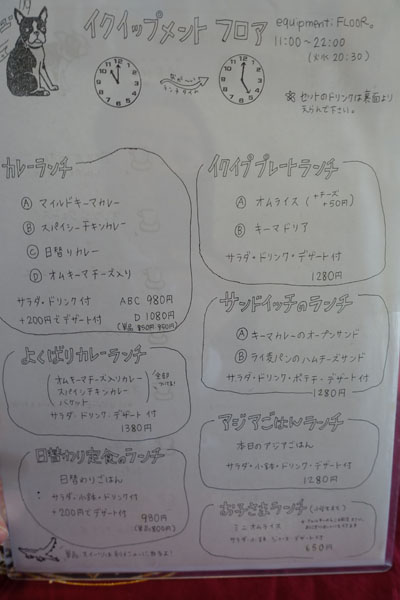 イクイップメント フロア
equipment:FLOOR。
11:00〜22:00
(火水 20:30)
ながーい
ランチタイム
※ セットのドリンクは裏面より
えらんで下さい。
カレーランチ
Ⓐ マイルドキーマカレー
Ⓑ スパイシーチキンカレー
Ⓒ 日替りカレー
Ⓓ オムキーマチーズ入り
サラダ・ドリンク付 ABC 980円
+200円でデザート付 D 1080円
よくばりカレーランチ
オムキーマチーズ入りカレー
スパイシーチキンカレー
バケット
サラダ・ドリンク・デザート付
1380円
日替わり定食のランチ
日替わりごはん
サラダ・小鉢・ドリンク付
+200円でデザート付
980円
イクイププレートランチ
Ⓐ オムライス (+チーズ +50円)
Ⓑ キーマドリア
サラダ・ドリンク・デザート付
1280円
サンドイッチのランチ
Ⓐ キーマカレーのオープンサンド
Ⓑ ライ麦パンのハムチーズサンド
サラダ・ドリンク・ポテト・デザート付
1280円
アジアごはんランチ
本日のアジアごはん
サラダ・小鉢・ドリンク・デザート付
1280円
お子さまランチ
ミニオムライス
サラダ・小鉢・ジュース・デザート付
650円